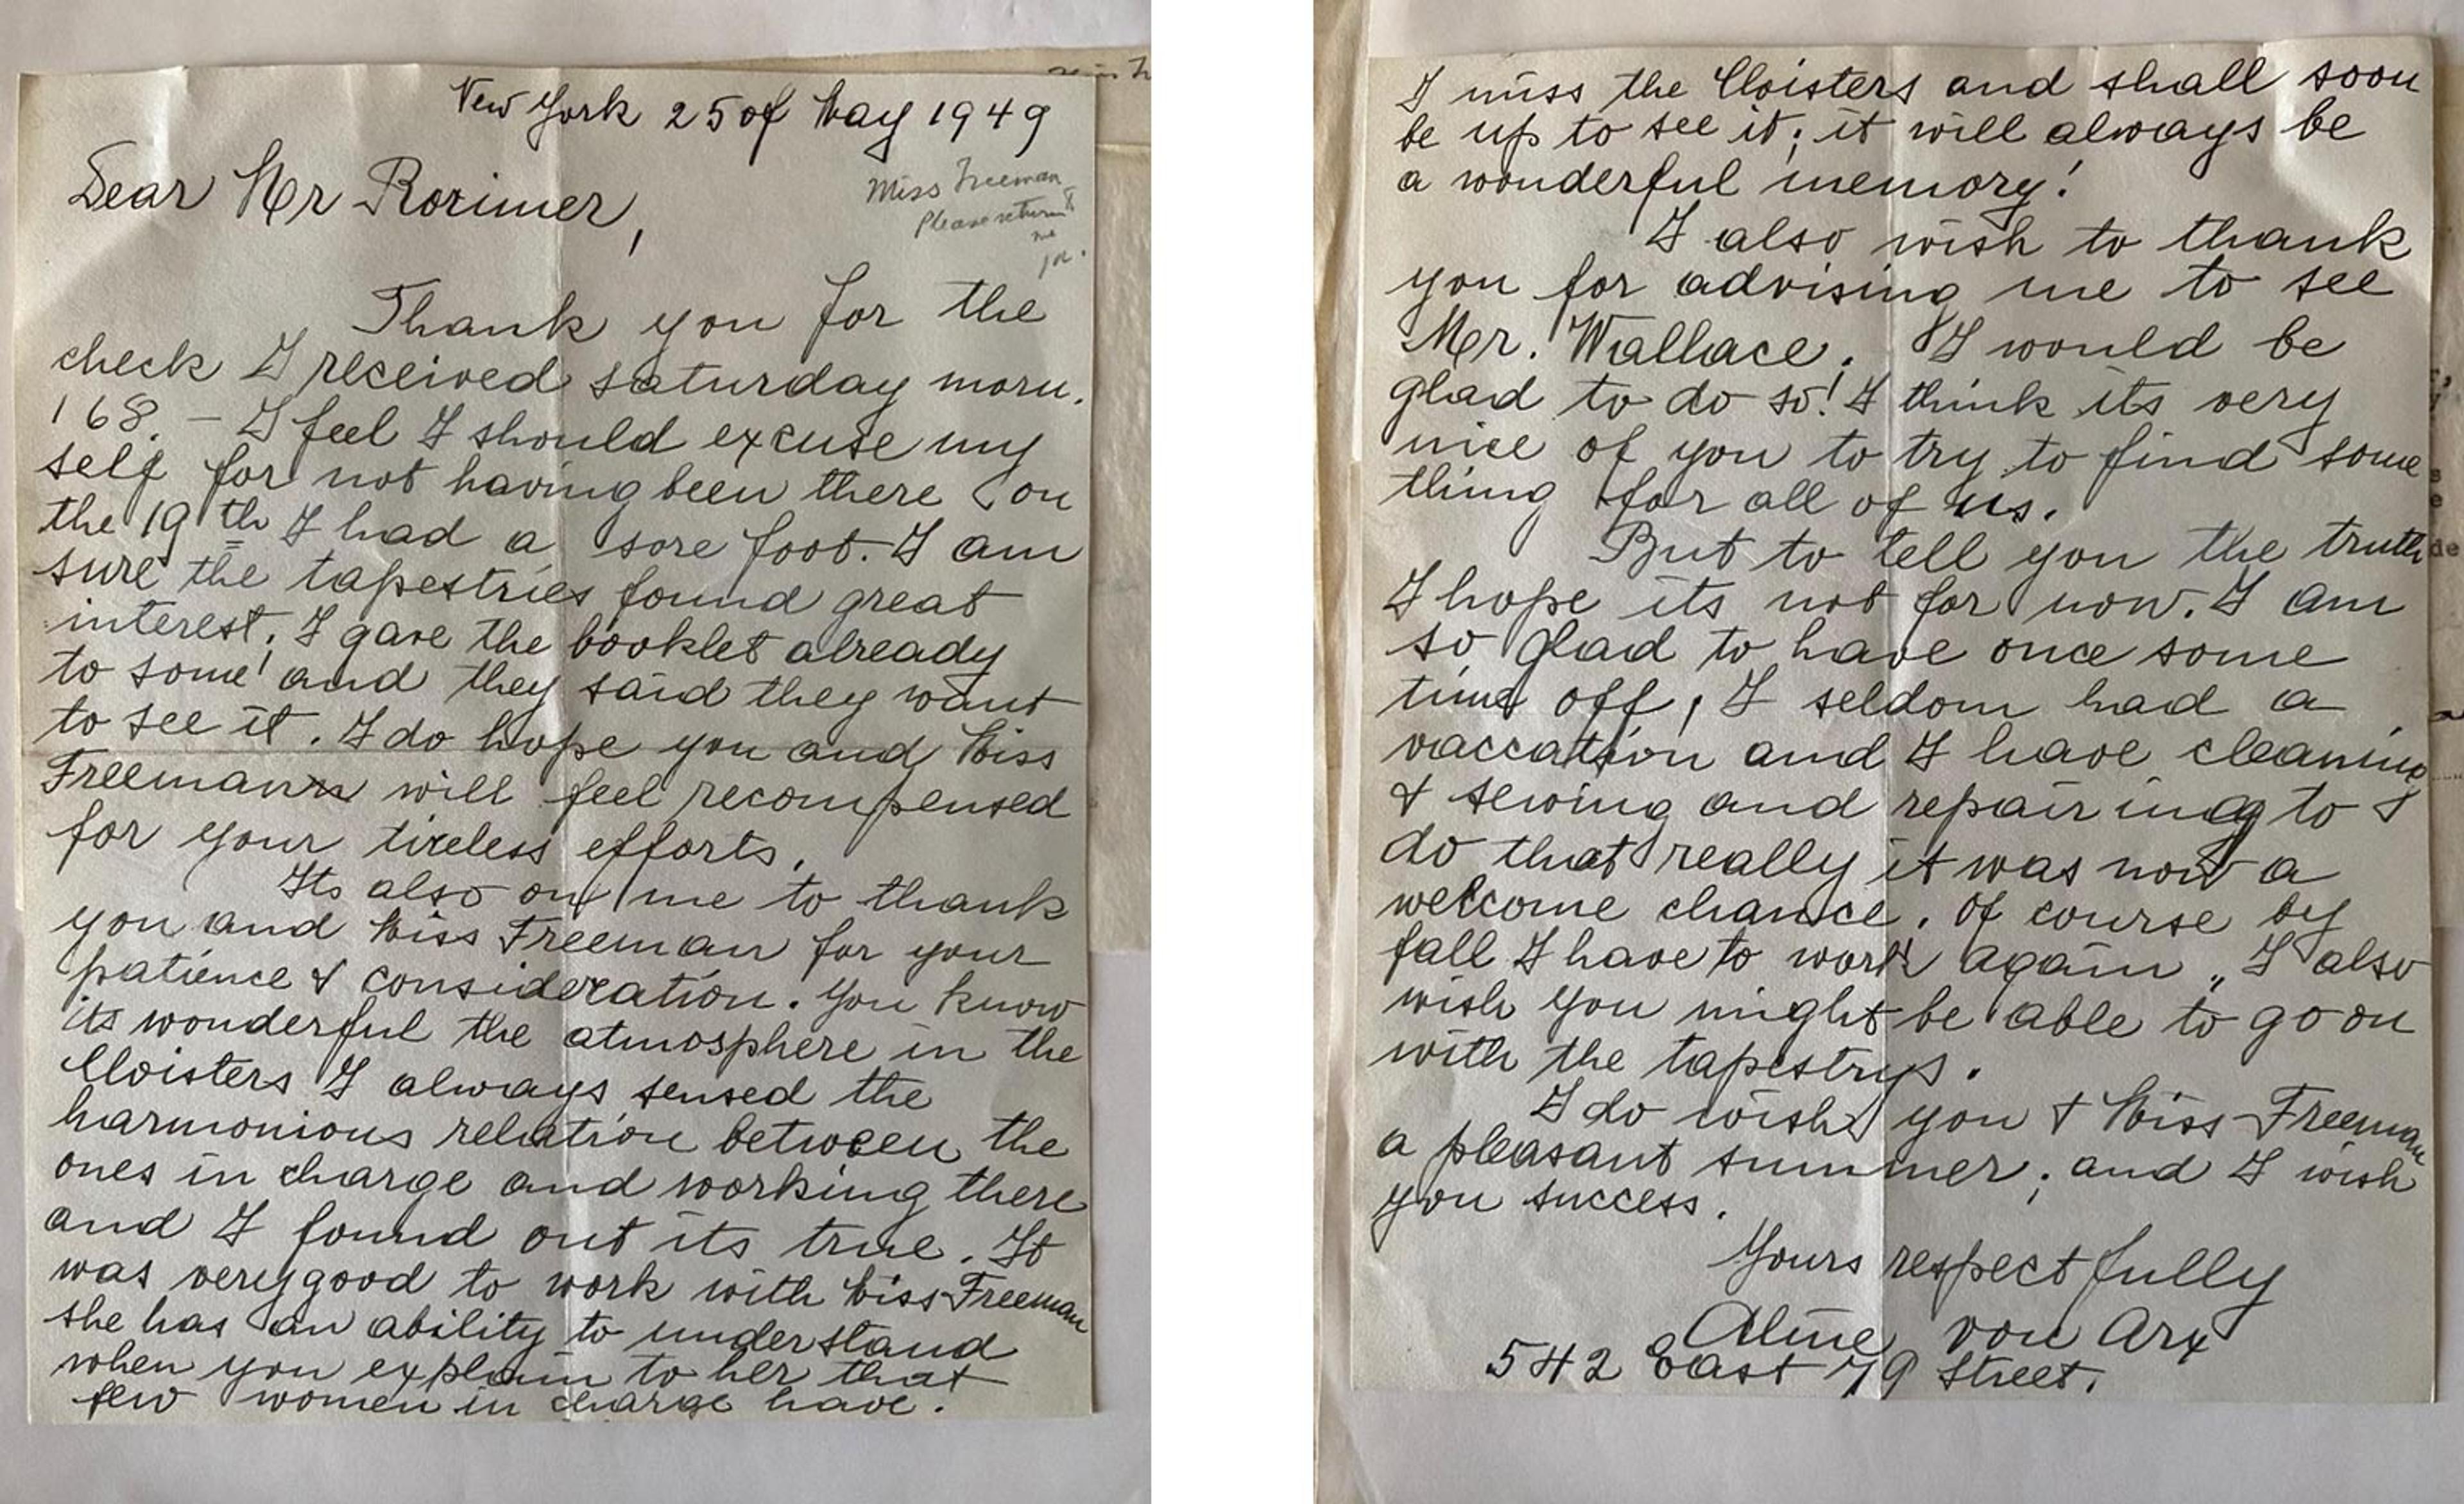 New York 25 of May 1949
Dear Mr Rorimer,
Miss Freeman
Please return to
me
Thank you for the
check I received saturday morn.
168. – I feel I should excuse my
self for not having been there on
the 19th I had a sore foot. I am
sure the tapestries found great
interest. I gave the booklet already
to some and they said they want
to see it. I do hope you and Miss
Freeman will feel recompensed
for your tireless efforts.
Its also on me to thank
you and Miss Freeman for your
patience & consideration. You know
its wonderful the atmosphere in the
Cloisters I always sensed the
harmonious relation between the
ones in charge and working there
and I found out its true. It
was very good to work with Miss Freeman
she has an ability to understand
when you explain to her that
few women in charge have.
I miss the Cloisters and shall soon
be up to see it; it will always be
a wonderful memory!
I also wish to thank
you for advising me to see
Mr. Wallace. I would be
glad to do so! I think its very
nice of you to try to find some
thing for all of us.
But to tell you the truth
I hope its not for now. I am
so glad to have once some
time off, I seldom had a
vaccation and I have cleaning
& sewing and repairing to
do that really it was now a
welcome chance. Of course by
fall I have to work again „ I also
wish you might be able to go on
with the tapestrys.
I do wish you & Miss Freeman
a pleasant summer; and I wish
you success.
Yours respectfully
Aline von Arx
542 East 79 Street.